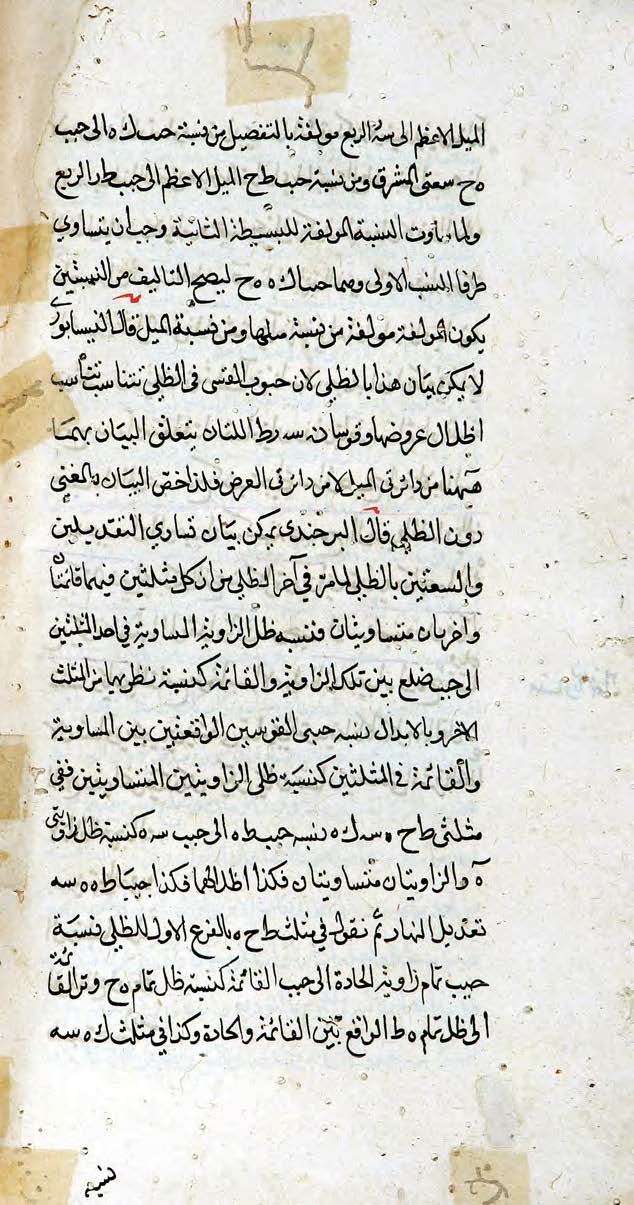 الميل الاعظم الى سه الربع مولفة بالتفصيل من نسبة جيب ك ه الى جيب
ه ح سعتى المشرق ومن نسبة جيب ط ح الميل الاعظم الى جيب الربع
ولما النسبة المولفة للبسيطة الثانية وجب ان يتساوى
طرفا النسب الاولى وهما ك ه ه ح ليصح التاليف من النسبتين
يكون المولفة مولفة من نسبة مثلها ومن نسبة الميل قال النيسابورى
لا يكون بيان هذا بالظلى لان جيوب القسى فى الظلى تتناسب تناسب
اظلال عروضها وقوسا سه ر ط اللتان يتعلق البيان بهما
ههنا من دائرتى الميل لا من دائرتى العرض فلذا خص البيان بالمغنى
دون الظلى قال البرجندى يمكن بيان تساوى التعديلين
والسعتين بالظلى لما مر فى آخر الظلى من ان كل مثلثين فيهما قائمتان
واخريان متساويتان فنسبة ظل الزاوية المساوية فى احد المثلثين
الى جيب ضلع بين تلك الزاوية والقائمة كنسبة نظيريهما من المثلث
الاخر وبالابدال نسبة جيبى القوسين الواقعتين بين المساوية
والقائمة فى المثلثين كنسبة ظلى الزاويتين المتساويتين ففى
مثلثى ط ح ه سه ك ه نسبة جيب ط ه الى جيب سه ه كنسبة ظل زاويتى
ه والزاويتان متساويتان فكذا اظلالهما فكذا جيبا ط ه ه سه
تعديل النهار ثم نقول فى مثلث ط ح ه بالفرع الاول للظلى نسبة
جيب تمام زاوية الحادة الى جيب القائمة كنسبة ظل تمام ه ح وتر القائمة
الى ظل تمام ه ط الواقع بين القائمة والحادة وكذا فى مثلث ك ه سه
نسبة